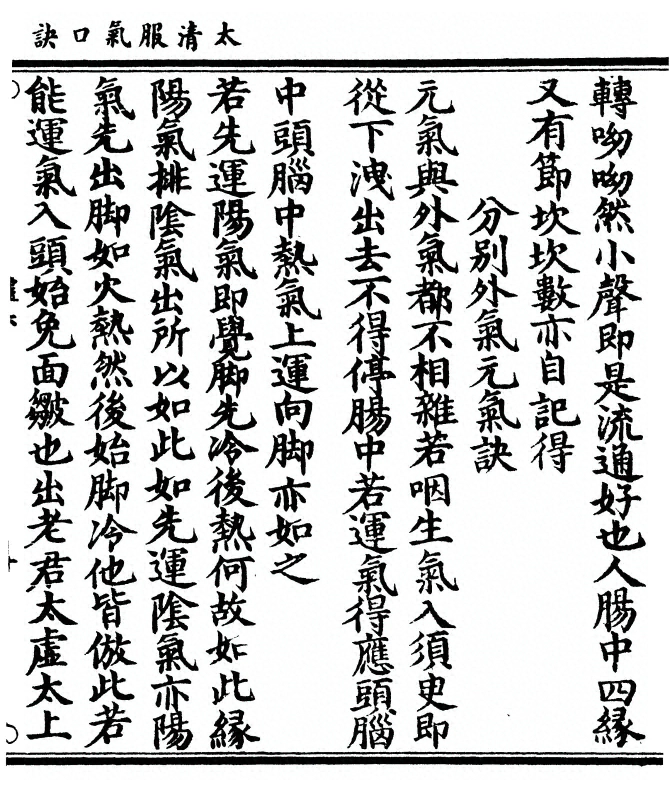 太清服氣口訣
轉呦呦然小聲即是流通好也人腸中四緣
又有節坎坎數亦自記得
分別外氣元氣訣
元氣與外氣都不相雜若咽生氣入須臾即
從下洩出去不得停腸中若運氣得應頭腦
中頭腦中熱氣上運向脚亦如之
若先運陽氣即覺脚先冷後熱何故如此緣
陽氣排陰氣出所以如此如先運陰氣亦陽
氣先出脚如火熱然後始脚冷他皆倣此若
能運氣入頭始免面皺也出老君太虛太上